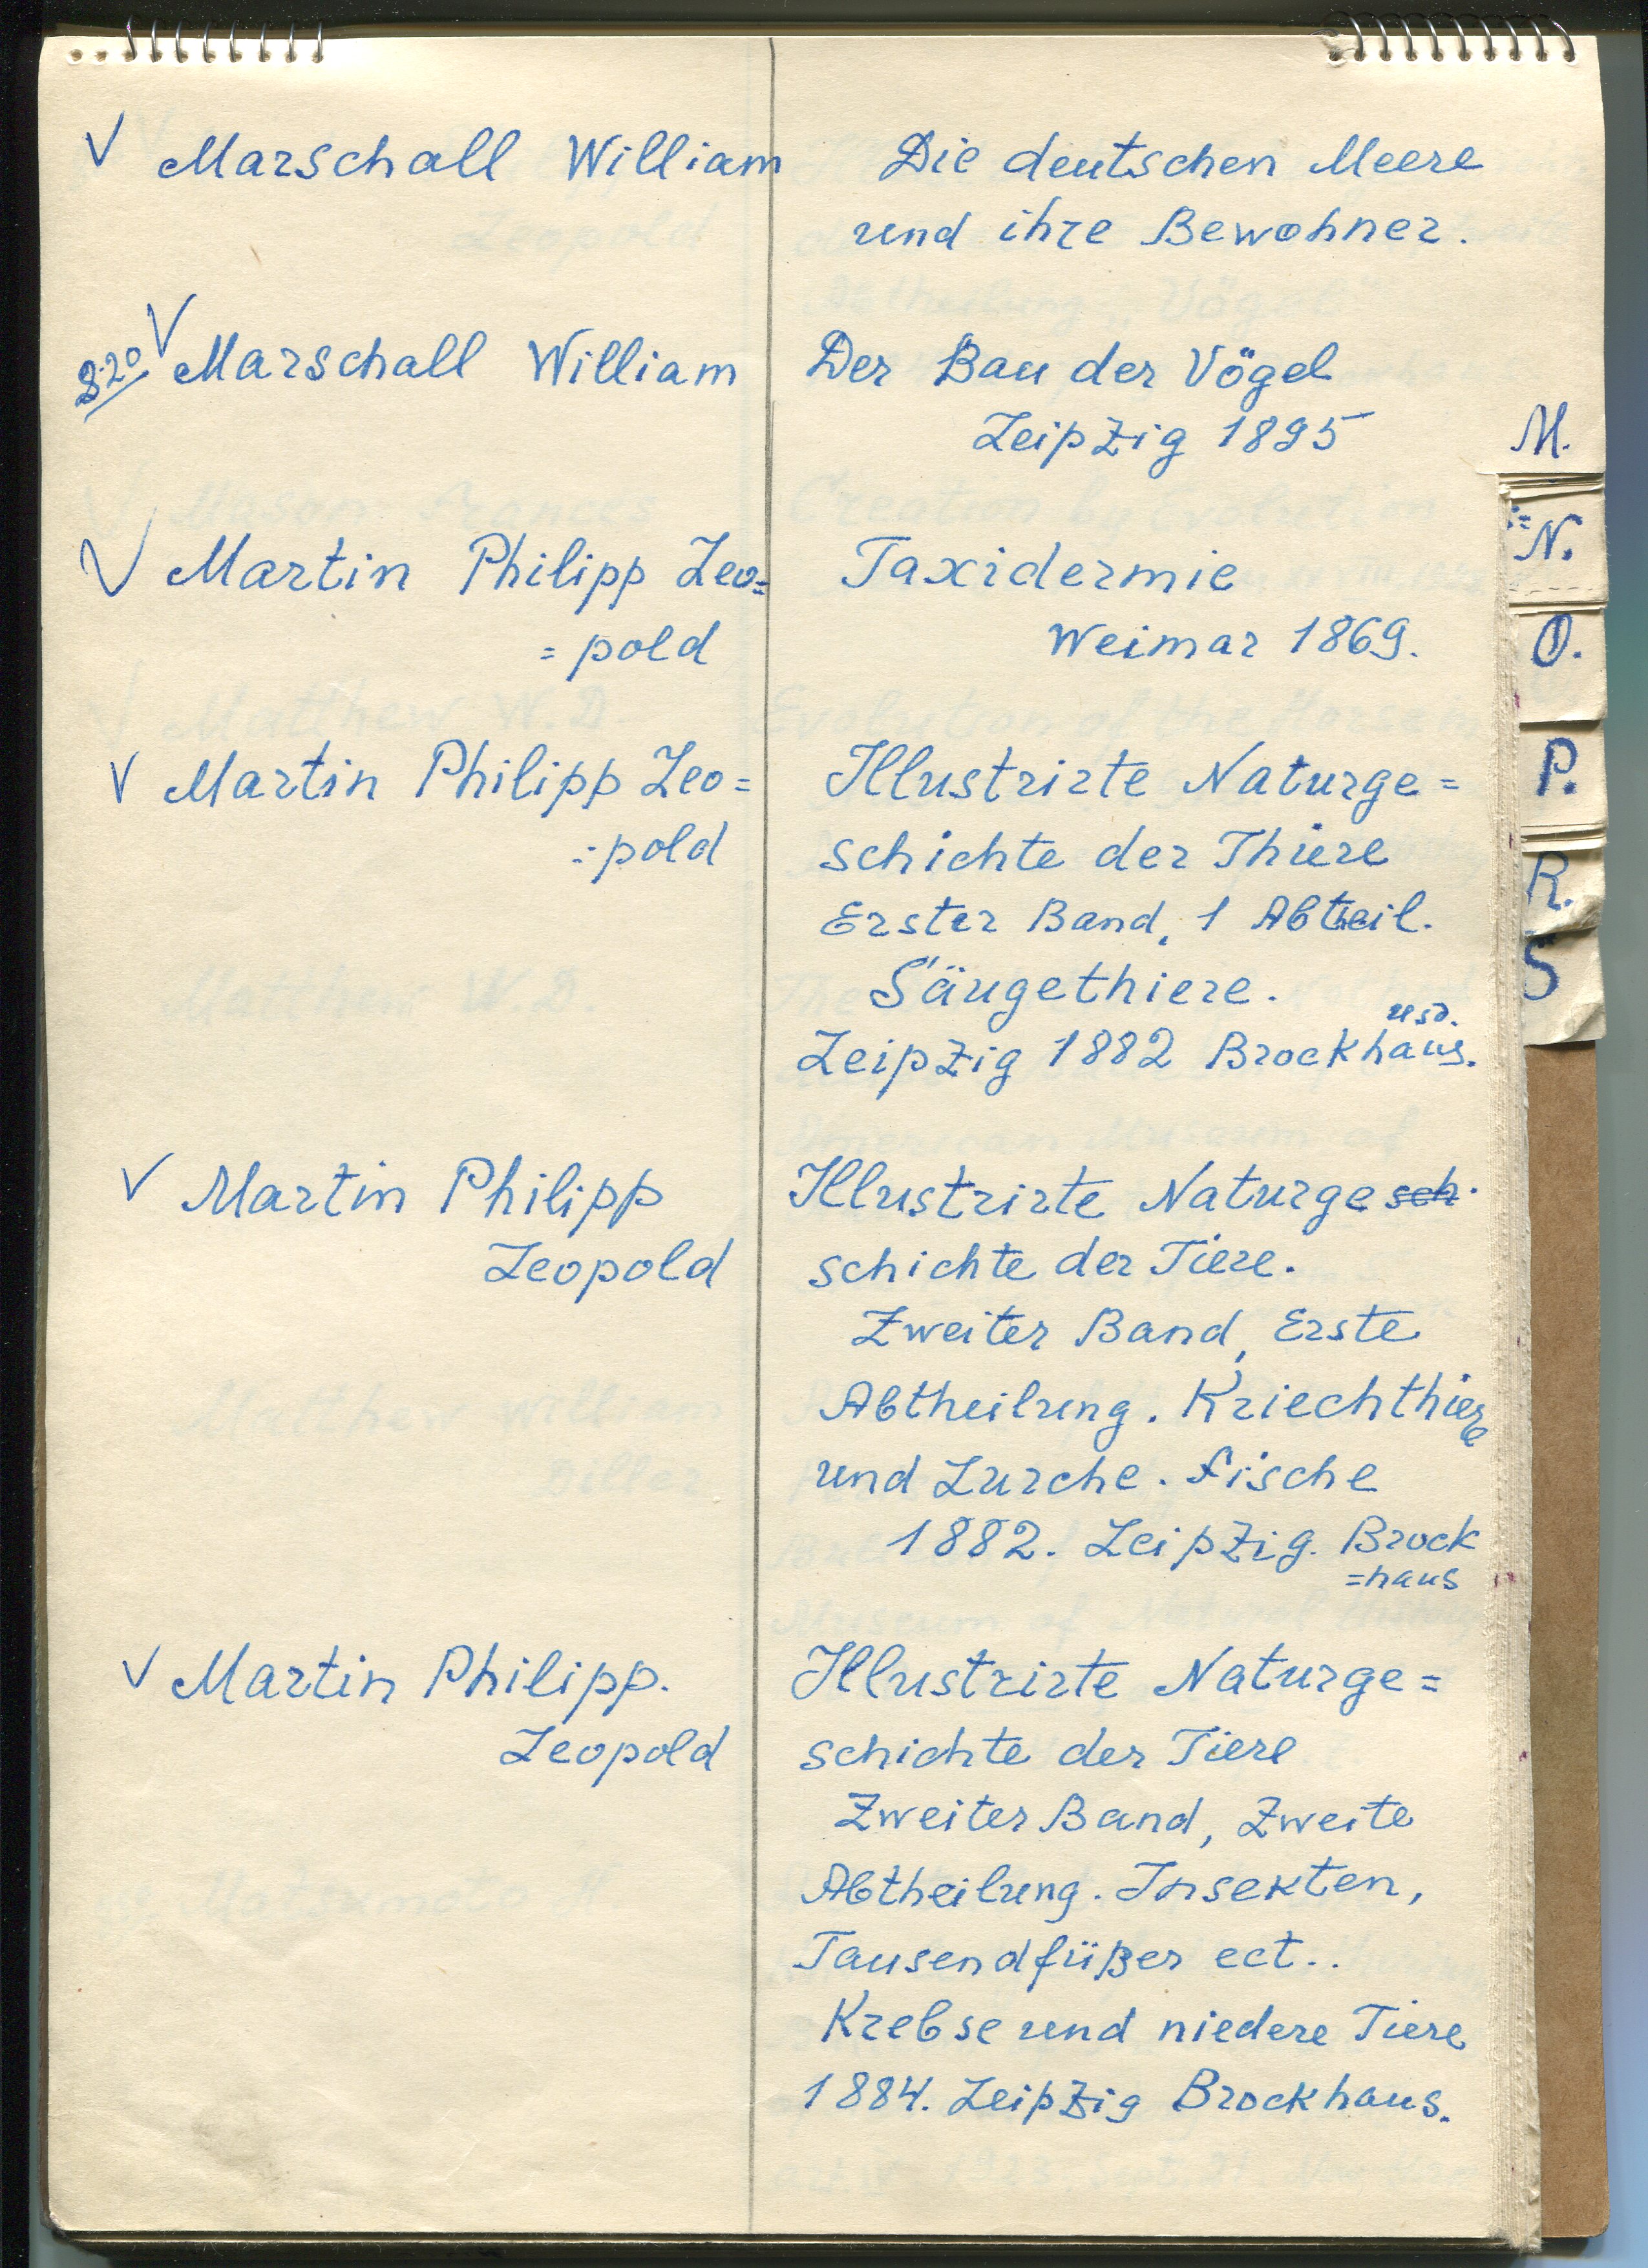 V Marschall William Die deutschen Meere
und ihre Bewohner.
8.20 V Marschall William Der Bau der Vögel
Leipzig 1895
V Martin Philipp Leo= Taxidermie
=pold Weimar 1869.
V Martin Philipp Leo= Illustrirte Naturge=
=pold schichte der Thiere
Erster Band, 1 Abteil.
Säugethiere.
Leipzig 1882 Brockhaus.
V Martin Philipp Illustrirte Naturgesch.
Leopold schichte der Tiere.
Zweiter Band, Erste
Abtheilung. Kriechthiere
und Lurche. Fische
1882. Leipzig. Brock
=haus
V Martin Philipp. Illustrirte Naturge=
Leopold schichte der Tiere
Zweiter Band, Zweite
Abtheilung. Insekten,
Tausendfüßer ect..
Krebse und niedere Tiere
1884. Leipzig Brockhaus.
M.
N.
O.
P.
R.
S